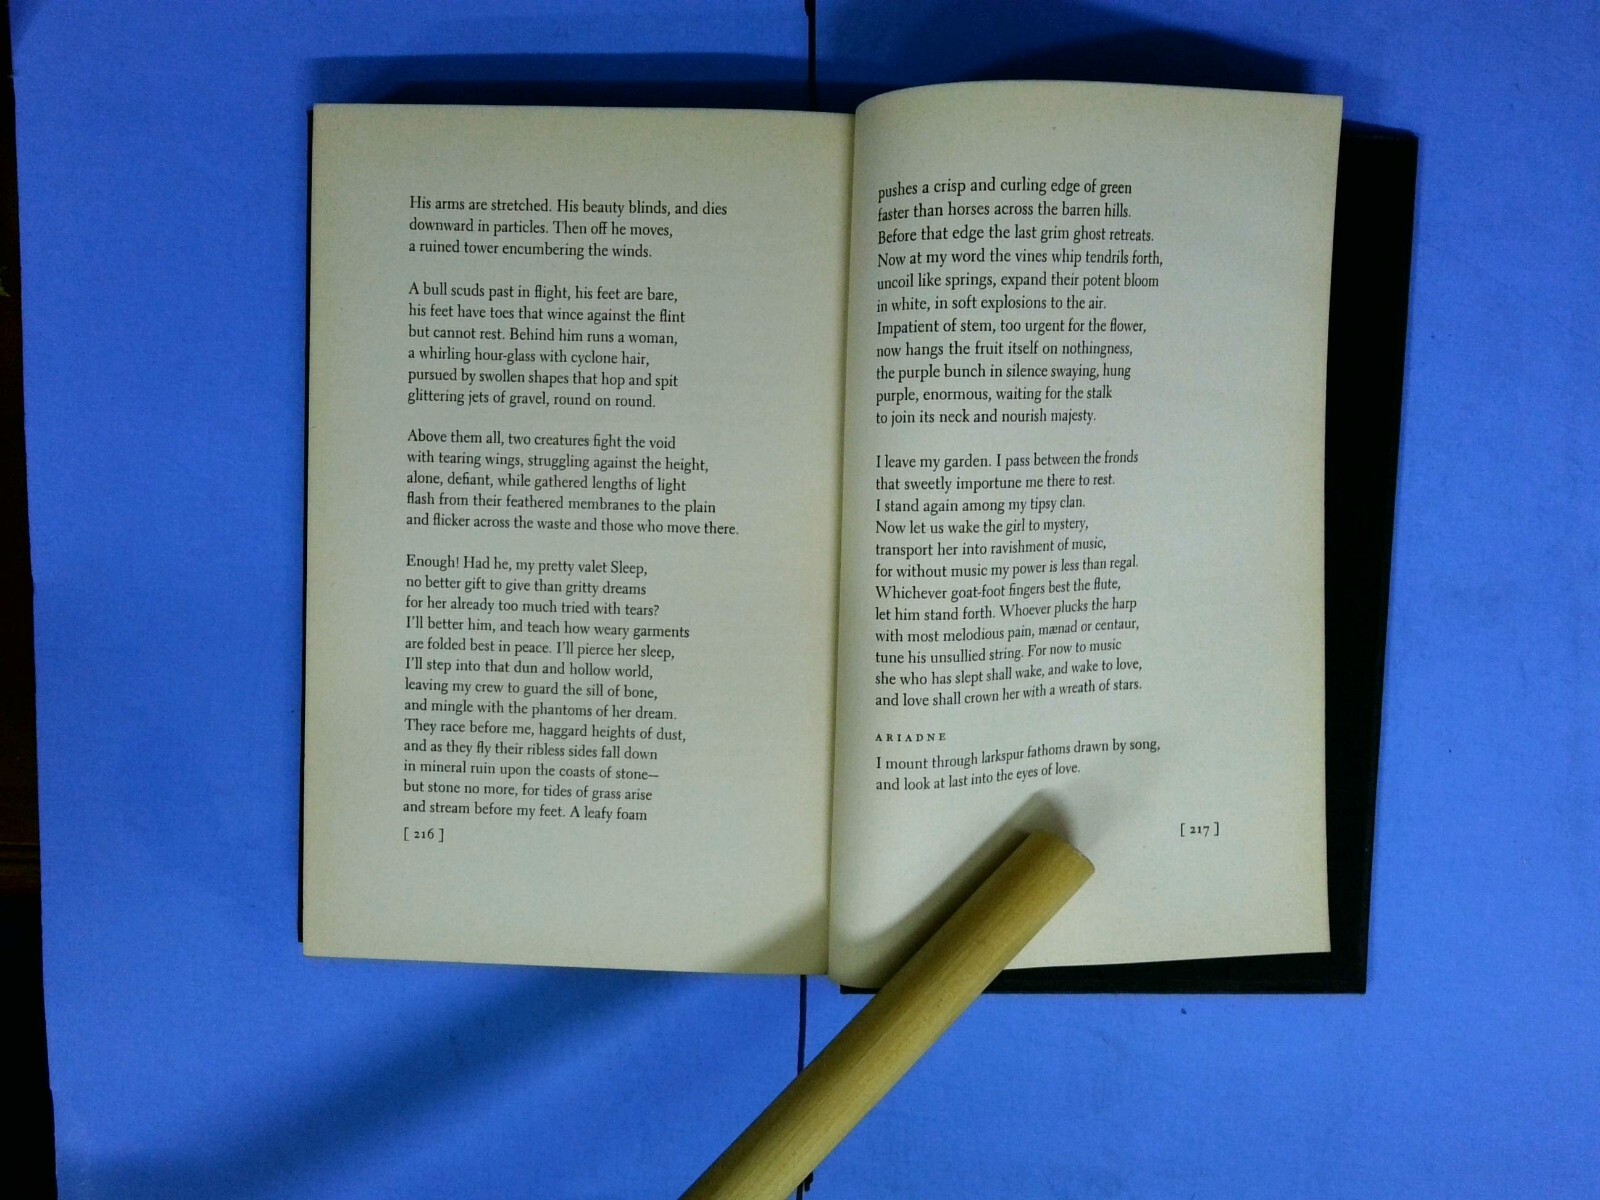 His arms are stretched. His beauty blinds, and dies
downward in particles. Then off he moves,
a ruined tower encumbering the winds.
A bull scuds past in flight, his feet are bare,
his feet have toes that wince against the flint
but cannot rest. Behind him runs a woman,
a whirling hour-glass with cyclone hair,
pursued by swollen shapes that hop and spit
glittering jets of gravel, round on round.
Above them all, two creatures fight the void
with tearing wings, struggling against the height,
alone, defiant, while gathered lengths of light
flash from their feathered membranes to the plain
and flicker across the waste and those who move there.
Enough! Had he, my pretty valet Sleep,
no better gift to give than gritty dreams
for her already too much tried with tears?
I'll better him, and teach how weary garments
are folded best in peace. I'll pierce her sleep,
I'll step into that dun and hollow world,
leaving my crew to guard the sill of bone,
and mingle with the phantoms of her dream.
They race before me, haggard heights of dust,
and as they fly their ribless sides fall down
in mineral ruin upon the coasts of stone—
but stone no more, for tides of grass arise
and stream before my feet. A leafy foam
[ 216 ]
pushes a crisp and curling edge of green
faster than horses across the barren hills.
Before that edge the last grim ghost retreats.
Now at my word the vines whip tendrils forth,
uncoil like springs, expand their potent bloom
in white, in soft explosions to the air.
Impatient of stem, too urgent for the flower,
now hangs the fruit itself on nothingness,
the purple bunch in silence swaying, hung
purple, enormous, waiting for the stalk
to join its neck and nourish majesty.
I leave my garden. I pass between the fronds
that sweetly importune me there to rest.
I stand again among my tipsy clan.
Now let us wake the girl to mystery,
transport her into ravishment of music,
for without music my power is less than regal.
Whichever goat-foot fingers best the flute,
let him stand forth. Whoever plucks the harp
with most melodious pain, mænad or centaur,
tune his unsullied string. For now to music
she who has slept shall wake, and wake to love,
and love shall crown her with a wreath of stars.
ARIADNE
I mount through larkspur fathoms drawn by song,
and look at last into the eyes of love.
[ 217 ]